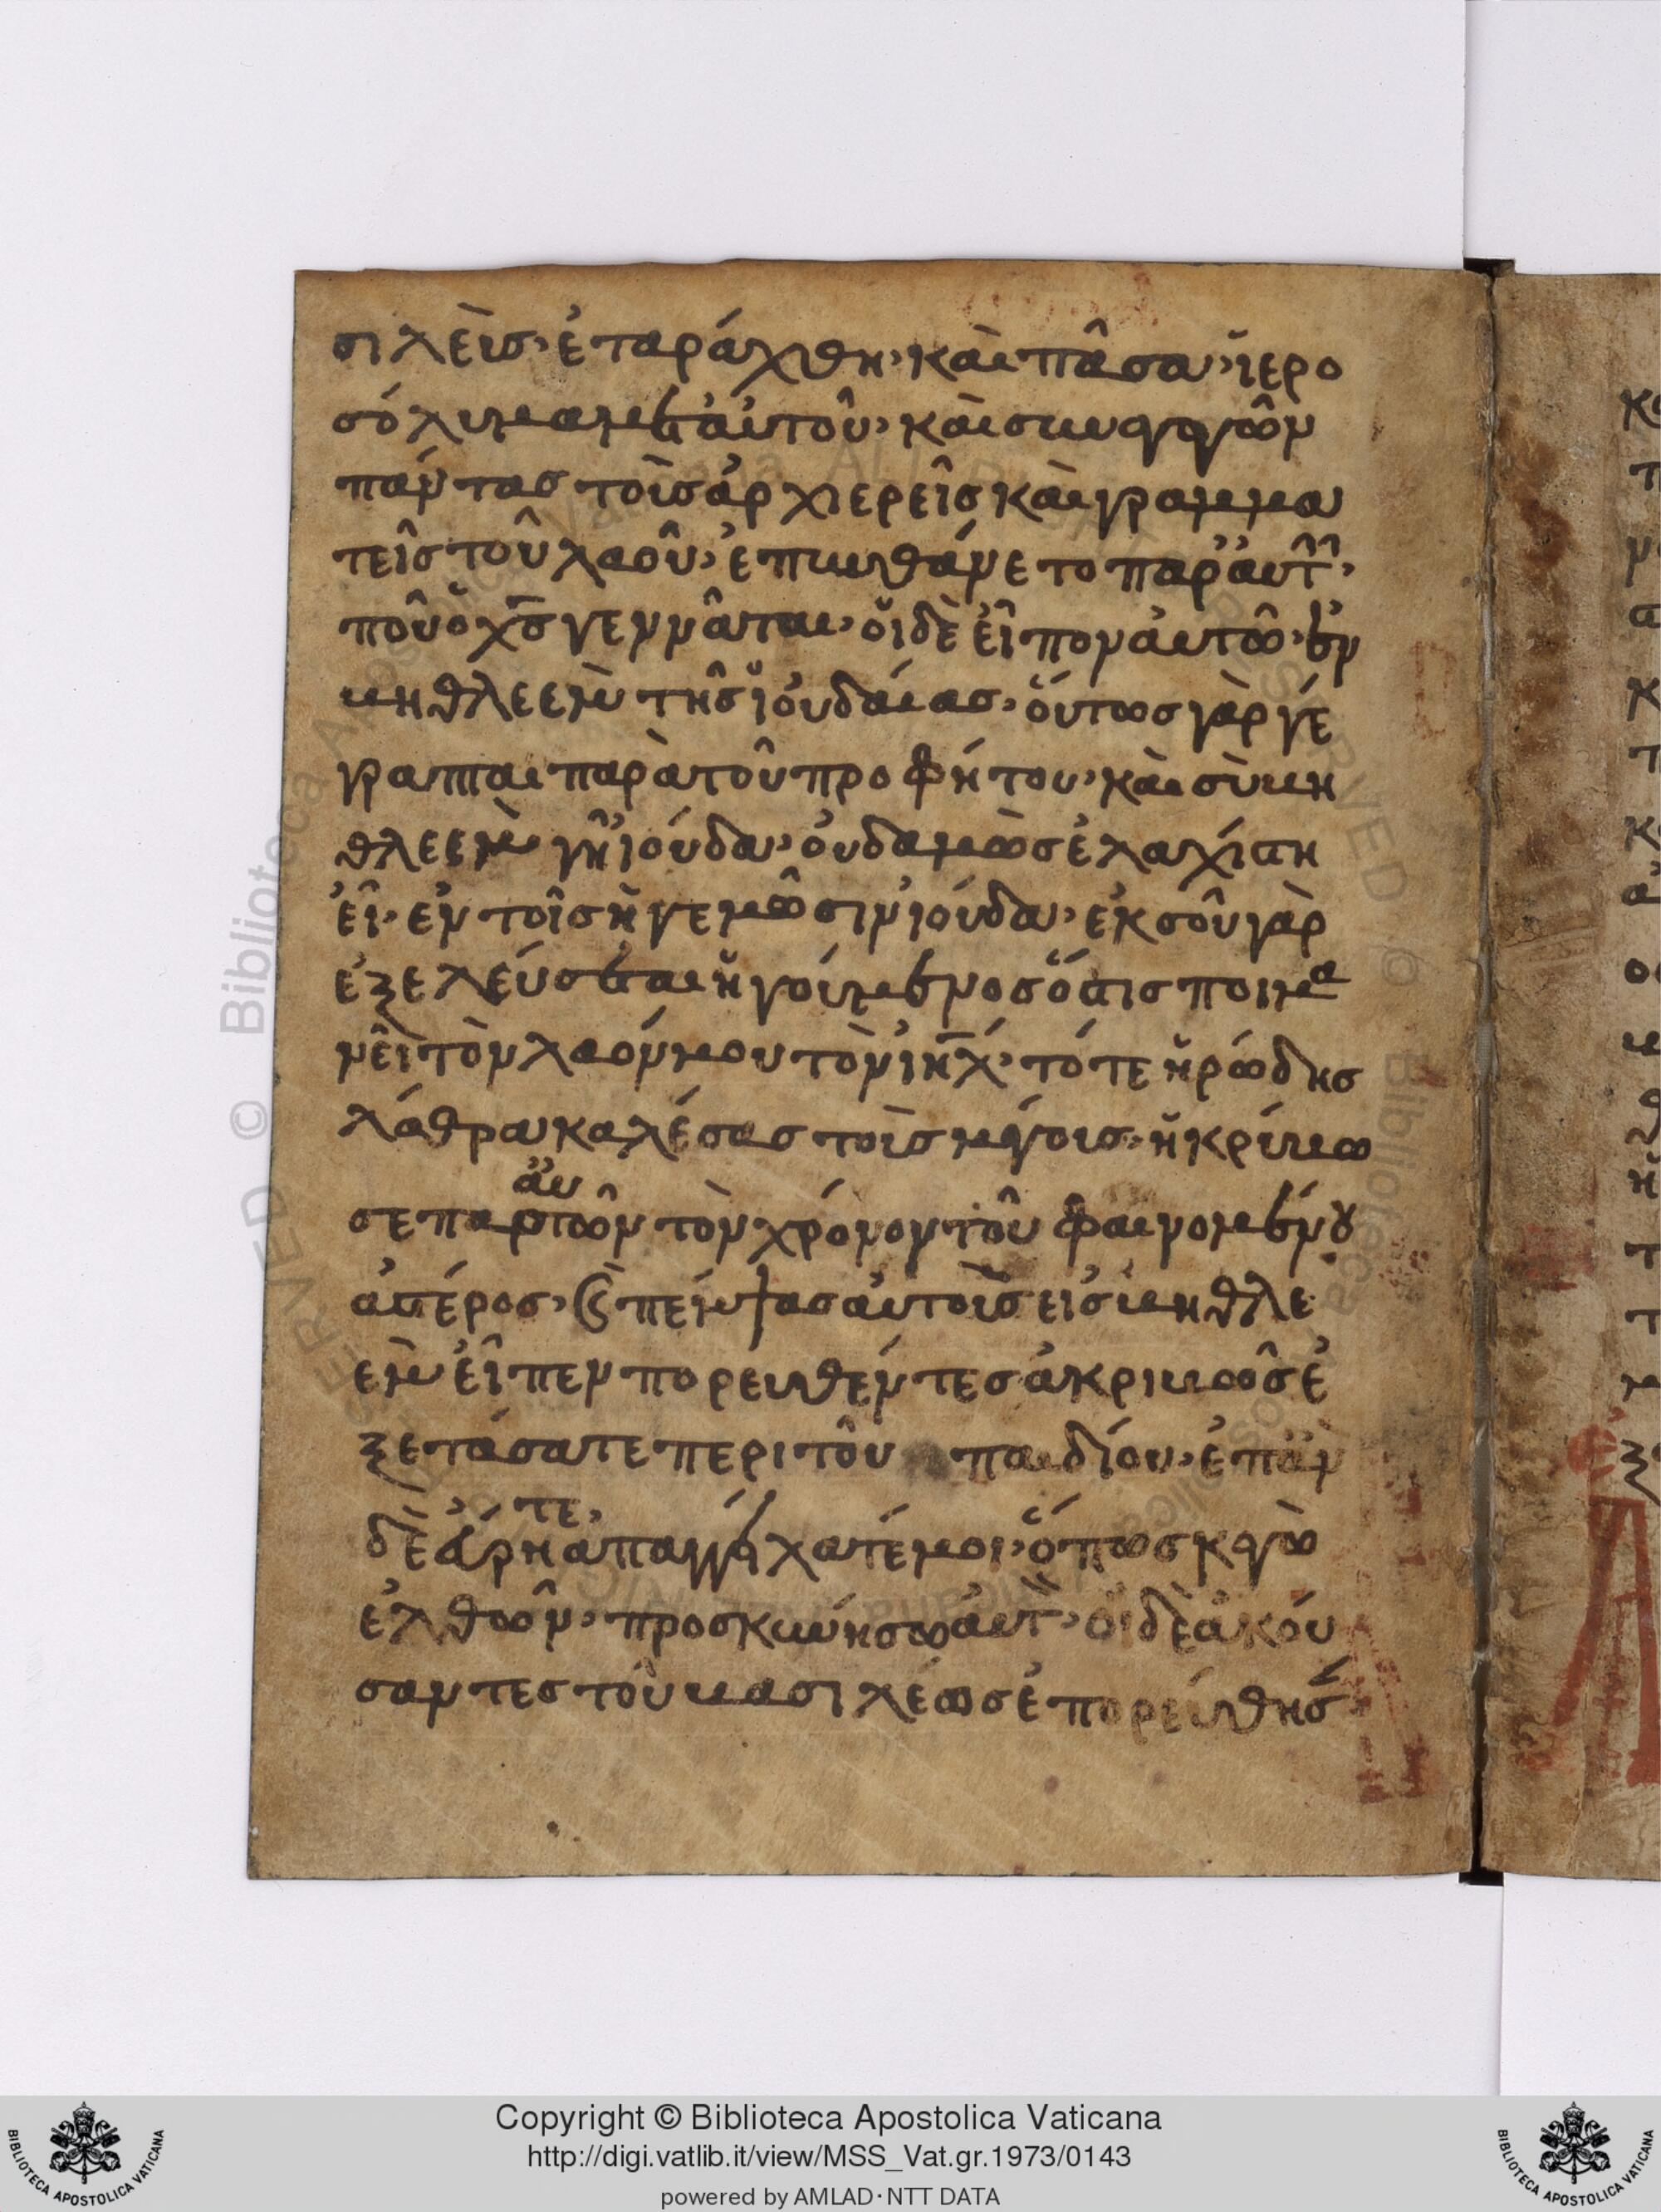 σιλεὺς· ἐταράχθη· καὶ πᾶσα· ἱερο
σόλυμα μετ' αὐτοῦ· καὶ συναγαγῶν
πάντας τοὺς ἀρχιερεῖς καὶ γραμμα
τεῖς τοῦ λαοῦ· ἐπυνθάνετο παρ' αὐτ·
ποῦ ὁ χς γεννᾶται· οἱ δὲ εἶπον αὐτῶ· ἐν
βηθλεὲμ τῆς ἰουδαίας· οὕτως γὰρ γέ
γραπται παρὰ τοῦ προφήτου· καὶ σὺ βη
θλεὲμ γῆ ἰούδα· οὐδαμῶς ἐλαχίστη
εἶ· ἐν τοῖς ἡγεμῶσιν ἰούδα· ἐκ σοῦ γὰρ
ἐξελεύσεται ἡγούμενος ὅστις ποιμα
νεῖ τὸν λαόν μου τὸν ιηλ· τότε ἡρώδης
λάθρα καλέσας τοὺς μάγους· ἠκρίβω
σε παρ αὐτῶν τὸν χρόνον τοῦ φαινομένου
ἀστέρος· καὶ πέμψας αὐτοὺς εἰς βηθλε
ὲμ εἶπεν πορευθέντες ἀκριβῶς ἐ
ξετάσατε περι τοῦ παιδίου· ἐπὰν
δὲ εὕρητε, ἀπαγγείλατέ μοι· ὅπως κἀγὼ
ἐλθῶν· προσκυνήσω αὐτ· οἱ δὲ ἀκού
σαντες τοῦ βασιλέως ἐπορεύθησ
Copyright © Biblioteca Apostolica Vaticana
http://digi.vatlib.it/view/MSS_Vat.gr.1973/0143
powered by AMLAD·NTT DATA
BIBLIOTECA APOSTOLICA VATICANA
BIBLIOTECA APOSTOLICA VATICANA